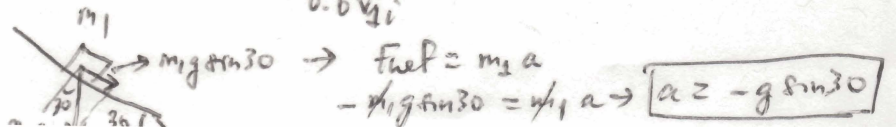 m₁
m₁g sin30 → Fnet = m₁ a
- m₁ g sin30 = m₁ a → a = - g sin30
30